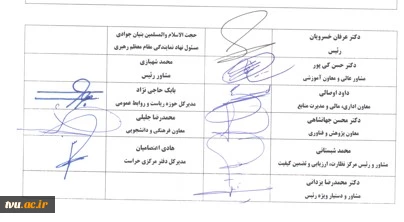 دکتر عرفان خسرویان
رئیس
حجت الاسلام والمسلمین بنیان جوادی
مسئول نهاد نمایندگی مقام معظم رهبری
دکتر حسن کی پور
مشاور عالی و معاون آموزشی
محمد شهبازی
مشاور رئیس
داود اوصالی
معاون اداری، مالی و مدیریت منابع
بابک حاجی نژاد
مدیرکل حوزه ریاست و روابط عمومی
دکتر محسن جهانشاهی
معاون پژوهش و فناوری
محمدرضا جلیلی
معاون فرهنگی و دانشجویی
محمد شبستانی
مشاور و رئیس مرکز نظارت، ارزیابی و تضمین کیفیت
هادی اعتصامیان
مدیرکل دفتر مرکزی حراست
دکتر محمدرضا یزدانی
مشاور و دستیار ویژه رئیس
tvu.ac.ir